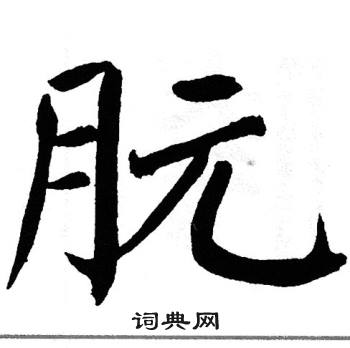 朊
词典网